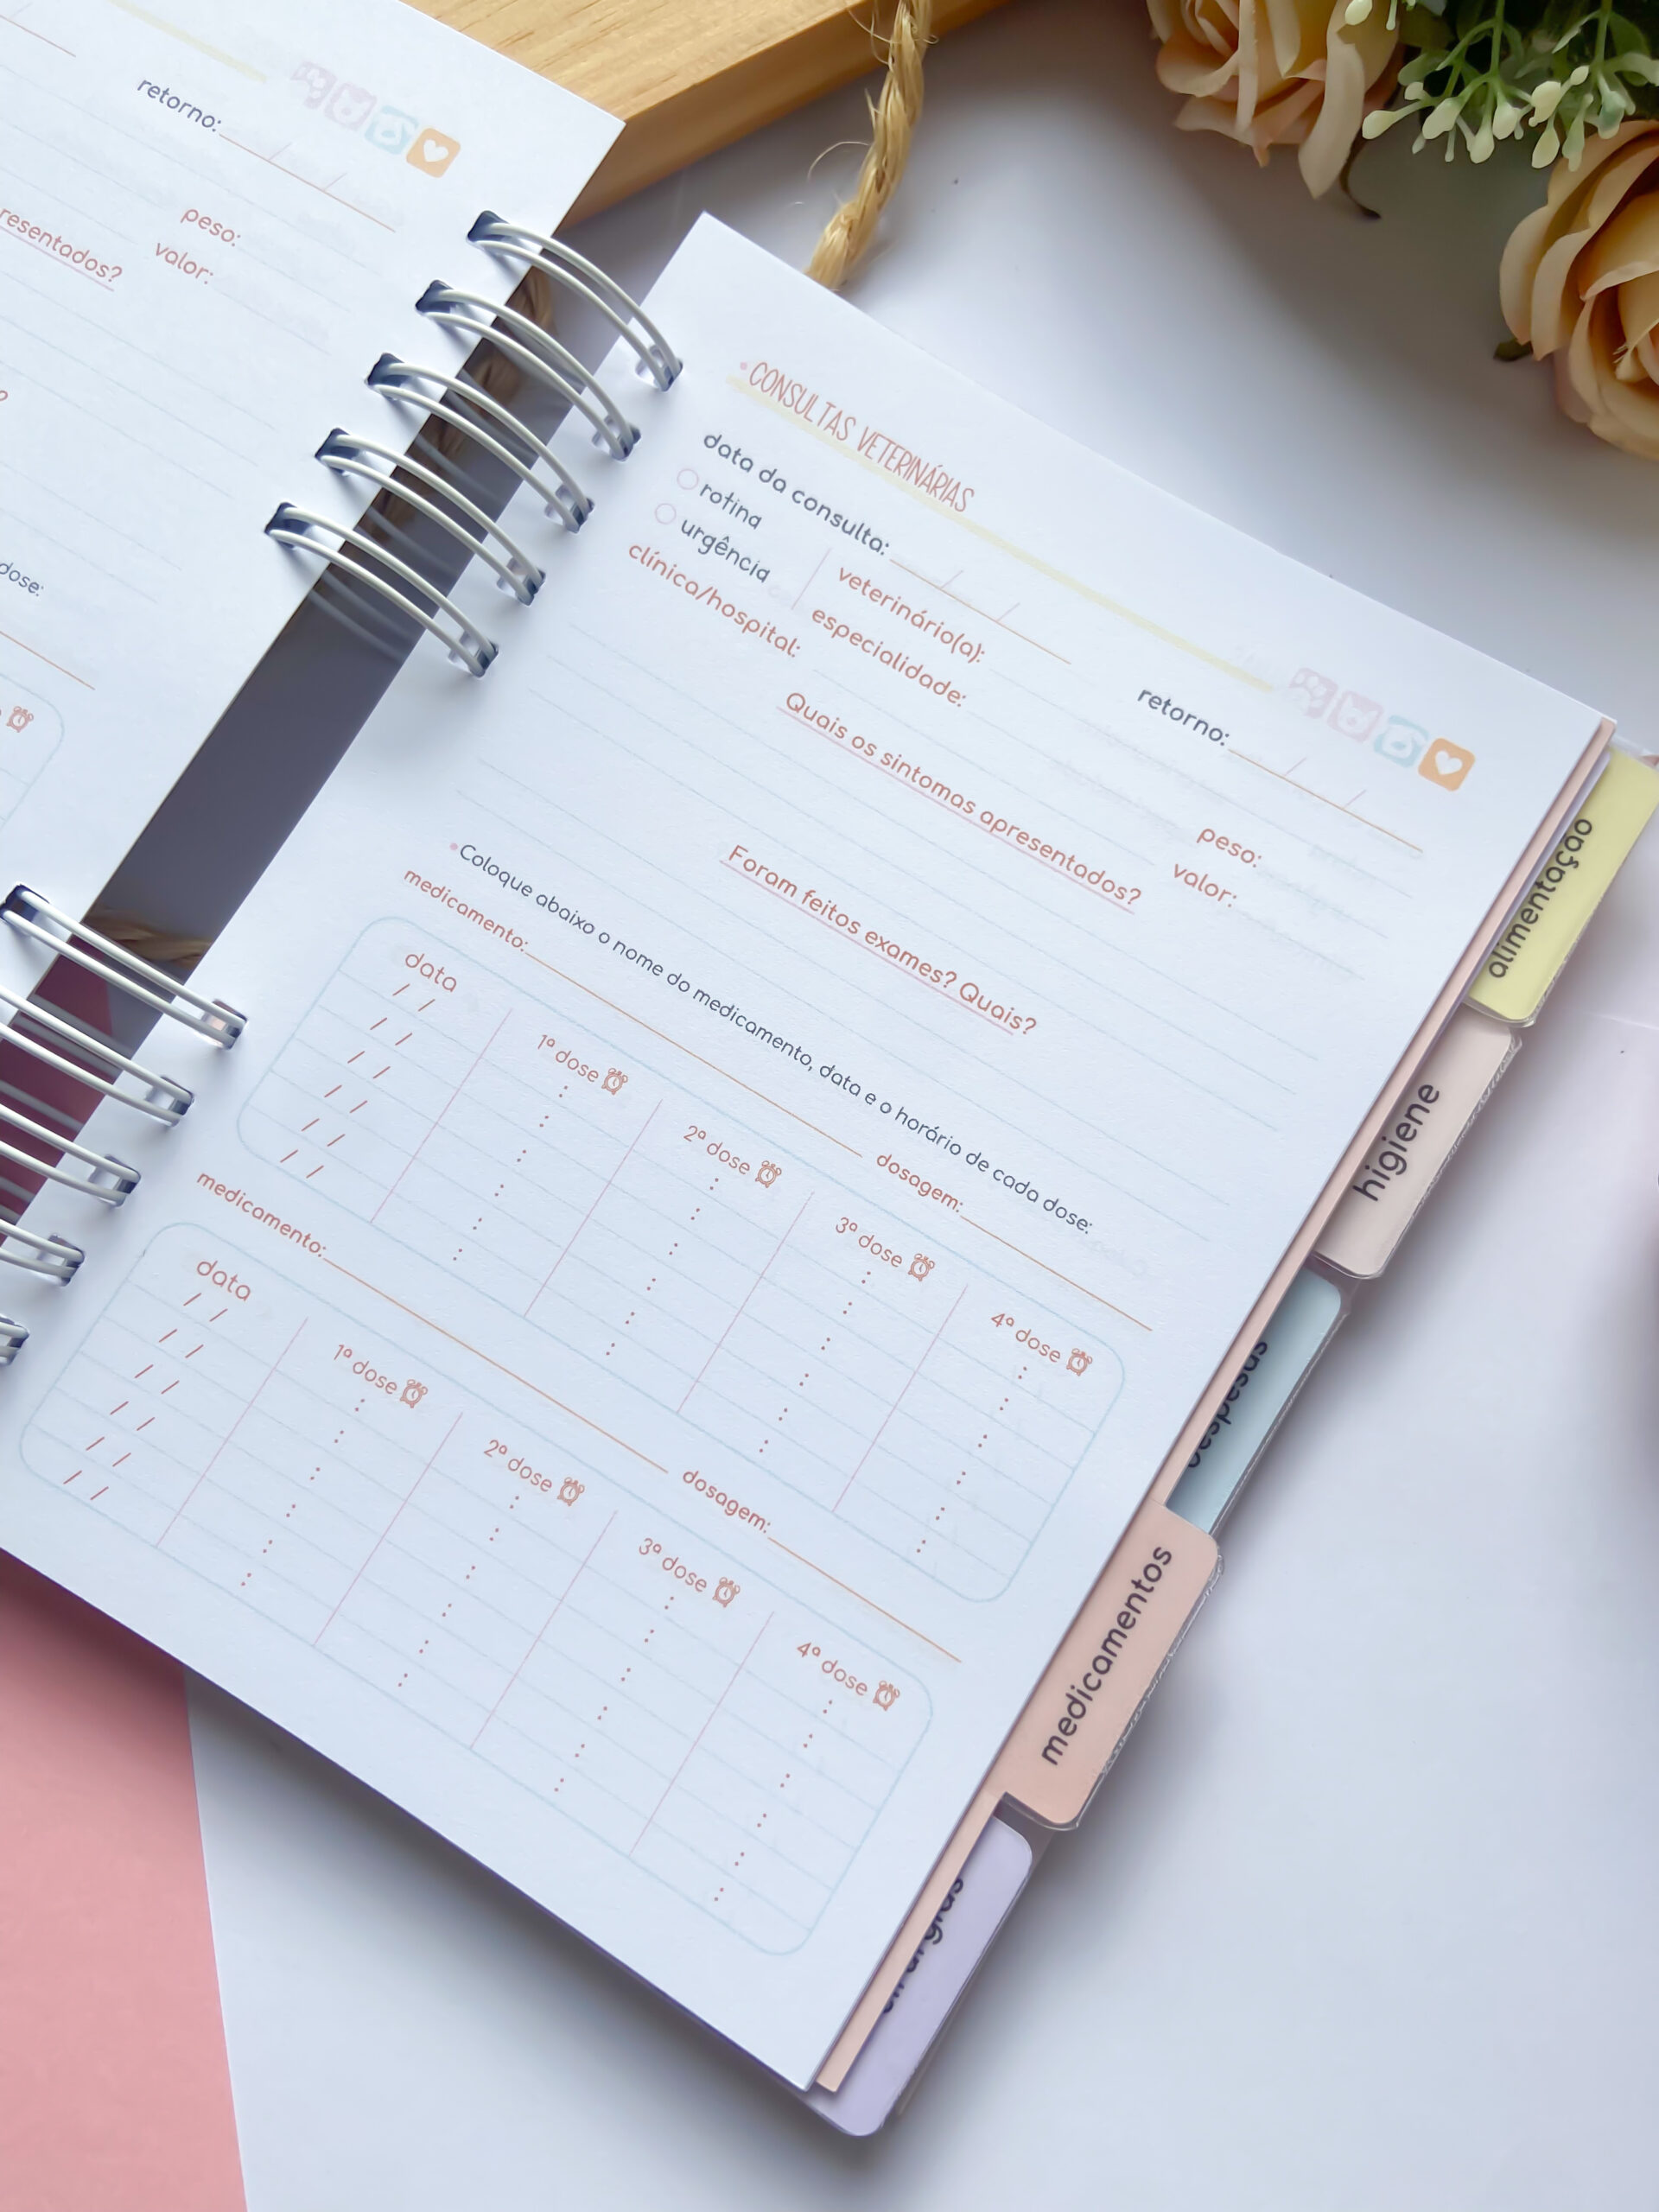 retorno:
peso:
resentados?
valor:
dose:
CONSULTAS VETERINÁRIAS
data da consulta: / /
retorno: / /
rotina
urgência
veterinário(a):
peso:
especialidade:
valor:
clínica/hospital:
Quais os sintomas apresentados?
Foram feitos exames? Quais?
Coloque abaixo o nome do medicamento, data e o horário de cada dose:
medicamento: dosagem:
data 1ª dose 2ª dose 3ª dose 4ª dose
/ / : : : :
/ / : : : :
/ / : : : :
/ / : : : :
/ / : : : :
/ / : : : :
medicamento: dosagem:
data 1ª dose 2ª dose 3ª dose 4ª dose
/ / : : : :
/ / : : : :
/ / : : : :
/ / : : : :
/ / : : : :
/ / : : : :
alimentação
higiene
despesas
medicamentos